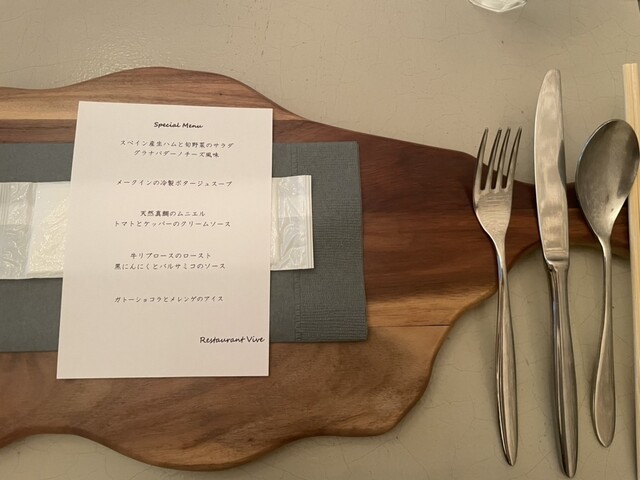 Special Menu
スペイン産生ハムと旬野菜のサラダ
グラナパダーノチーズ風味
メークインの冷製ポタージュスープ
天然真鯛のムニエル
トマトとケッパーのクリームソース
牛リブロースのロースト
黒にんにくとバルサミコのソース
ガトーショコラとメレンゲのアイス
Restaurant Vive